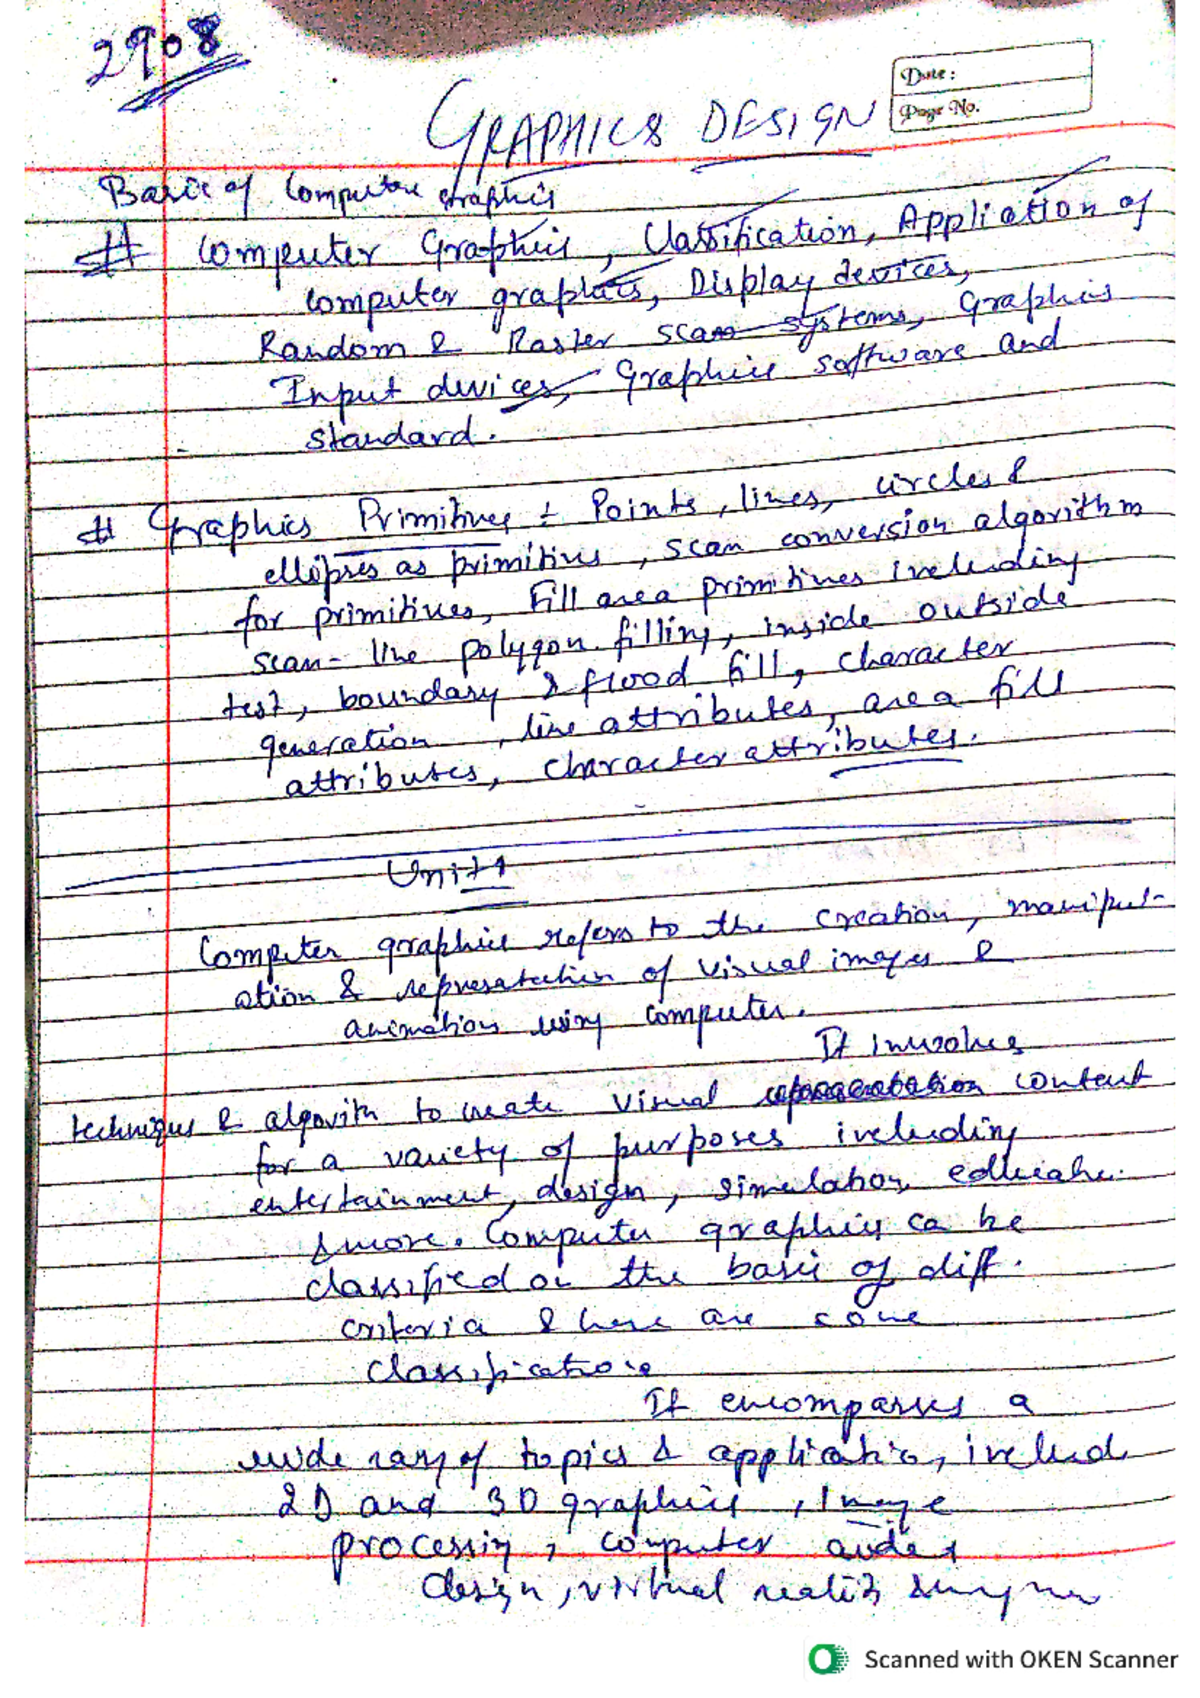 2908
Date :
Page No.
GRAPHICS DESIGN
Basic of Computer Graphics
# Computer Graphics, Classification, Application of
computer graphics, Display devices,
Random & Raster scan systems, Graphics
Input devices, Graphics software and
standard.
# Graphics Primitives : Points, lines, circles &
ellipses as primitives, scan conversion algorithm
for primitives, Fill area primitives including
scan-line polygon filling, inside outside
test, boundary & flood fill, character
generation, line attributes, area fill
attributes, character attributes.
Unit 1
Computer graphics refers to the creation, manipul-
ation & representation of visual images &
animations using computer.
It involves
techniques & algorith to create visual content
for a variety of purposes including
entertainment, design, simulation,
& more. Computer graphics ca be
classified on the basis of diff.
criteria & here are some
classification
It encompasses a
wide range of topics & application, includ
2D and 3D graphics, Image
processing, computer aided
design, virtual reality
Scanned with OKEN Scanner